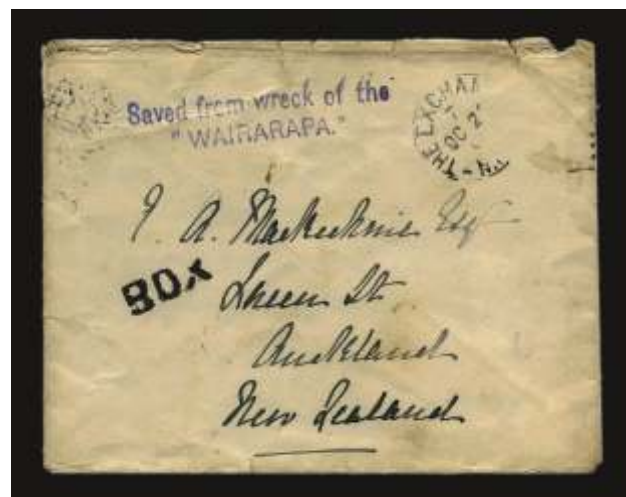 Saved from wreck of the
"WAIRARAPA."
THE EXCHA
OC 2
BOX
A. Esq
Queen St
Auckland
New Zealand